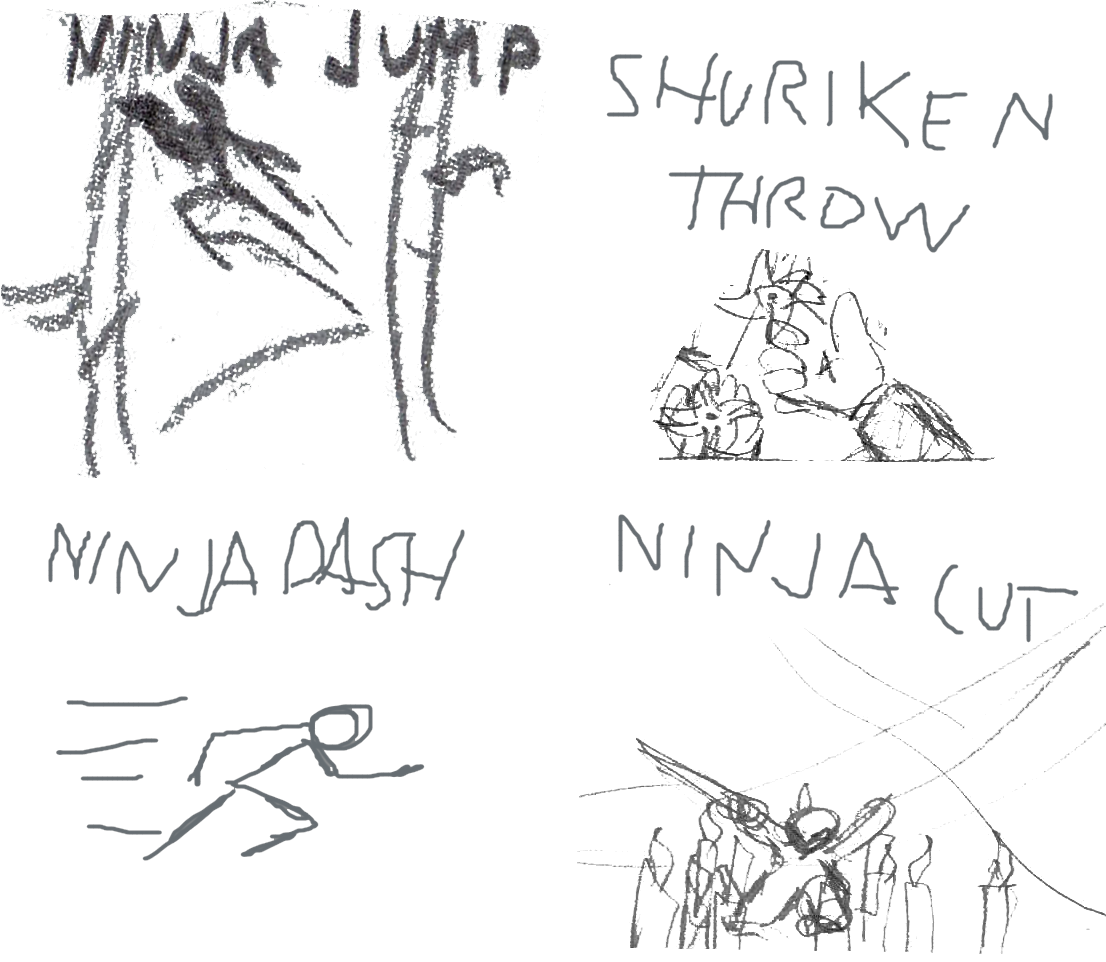 NINJA JUMP
SHURIKEN
THROW
NINJA DASH
NINJA CUT